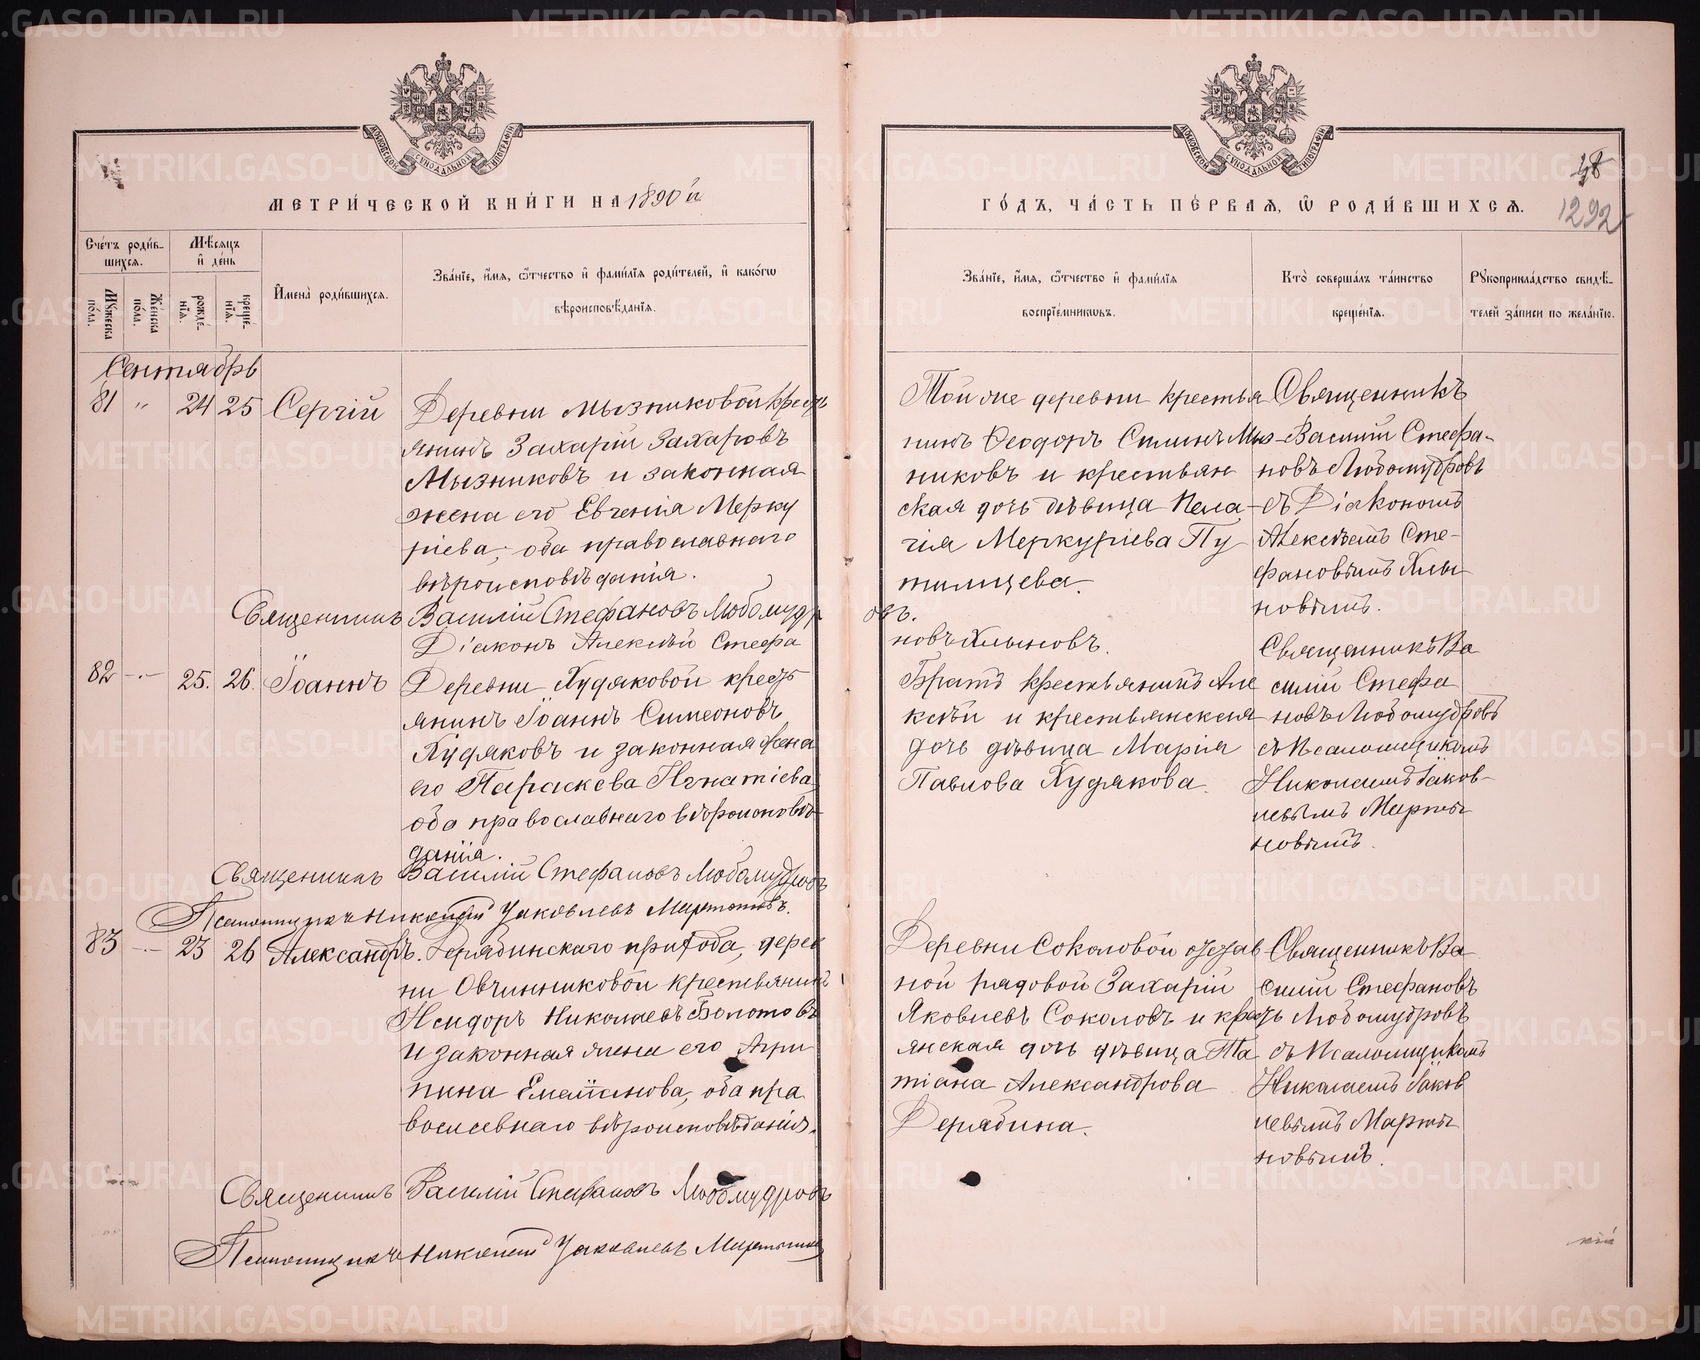 МЕТРИ́ЧЕСКОЙ КНИ́ГИ НА 1890 й
Сче́тъ роди́в-
шихся.
Мѣ́сяцъ
и҆ де́нь
Му́жеска
по́ла.
Же́нска
по́ла.
рожде́-
нїѧ.
креще́-
нїѧ.
И҆мена̀ роди́вшихсѧ.
Зва́нїе, и҆́мѧ, ѻ҆́тчество и҆ фами́лїѧ роди́телей, и҆ како́гѡ
вѣроисповѣ́данїѧ.
Сентябрь
81 " 24 25 Сергій
Деревни Мызниковой кресть
янинъ Захарій Захаровъ
Мызниковъ и законная
жена его Евгенія Мерку
ріева, оба православнаго
вѣроисповѣданія.
Священникъ Василій Стефановъ Любомудр
Діаконъ Алексѣй Стефа
82 25. 26. Іоаннъ
Деревни Худяковой кресть
янинъ Іоаннъ Симеоновъ
Худяковъ и законная жена
его Параскева Игнатіева,
оба православнаго вѣроисповѣ-
данія.
Священникъ Василій Стефановъ Любомудровъ
Псаломщикъ Николай Яковлевъ Мартыновъ.
83 23 26 Александръ.
прихода, дерев
ни Овчинниковой крестьянинъ
Исидоръ Николаевъ Болотовъ
и законная жена его Агри
пина Емеліанова, оба пра
вославнаго вѣроисповѣданія.
Священникъ Василій Стефановъ Любомудровъ
Псаломщикъ Николай Яковлевъ Мартыновъ
48
1292
ГО́ДЪ, ЧА́СТЬ ПЕ́РВАЯ, Ѡ҆ РОДИ́ВШИХСЯ.
Зва́нїе, и҆́мѧ, ѻ҆́тчество и҆ фами́лїѧ
воспрїе́мникѡвъ.
Кто̀ соверша́лъ та́инство
креще́нїѧ.
Рꙋкоприкла́дство свидѣ́-
телей за́писи по жела́нїю.
Той же деревни крестья
нинъ Ѳеодоръ Силинъ Мыз-
никовъ и крестьян
ская дочь дѣвица Пела-
гія Меркуріева Пу
тилцева.
Священникъ
Василій Стефа-
новъ Любомудровъ
съ Діакономъ
Алексѣемъ Сте-
фановымъ Хлы
новымъ.
овъ.
новъ Хлыновъ.
Братъ крестьянинъ Але
ксѣй и крестьянская
дочь дѣвица Марія
Павлова Худякова.
Священникъ Ва
силій Стефа
новъ Любомудровъ
съ Псаломщикомъ
Николаемъ Іаков-
левымъ Марты
новымъ.
Деревни Соколовой
ной рядовой Захарій
Яковлевъ Соколовъ и кресть
янская дочь дѣвица Та
тіана Александрова
Дерябина.
Священникъ Ва
силій Стефановъ
Любомудровъ
съ Псаломщикомъ
Николаемъ Іаков
левымъ Марты
новымъ.
METRIKI.GASO-URAL.RU